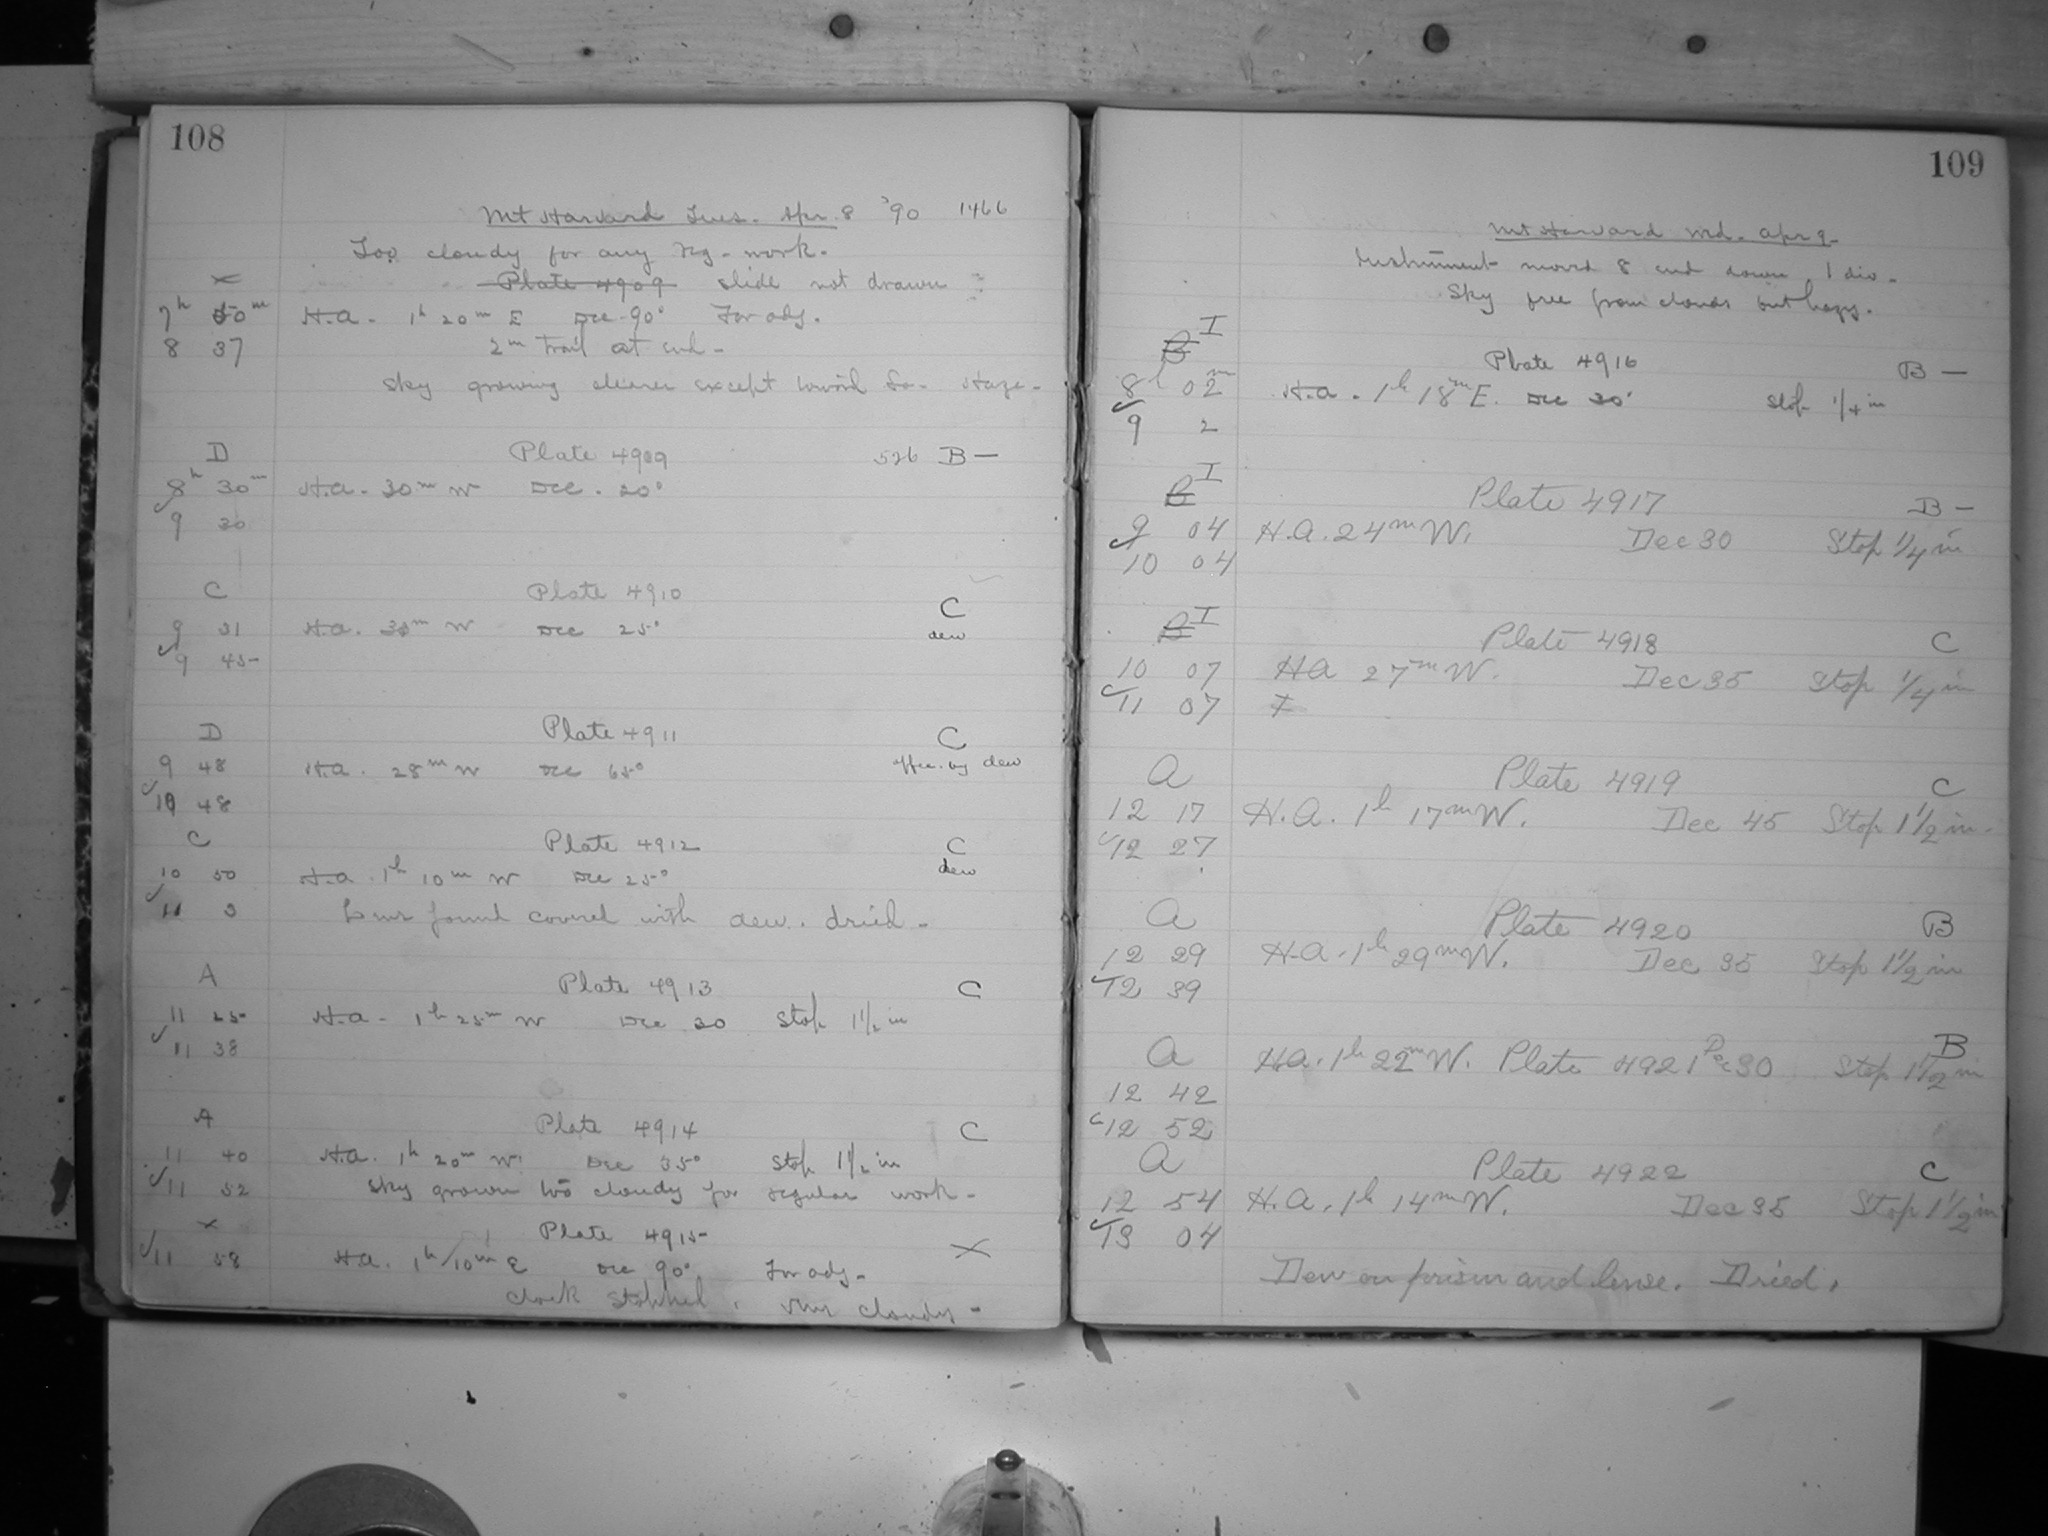 108
Mt Harvard Tues. Apr. 8 '90 1466
Too cloudy for any reg. work.
x Plate 4909 slide not drawn
7h 50m H.a. 1h 20m E Dec 90° For adj.
8 37 2m trail at end -
Sky growing clearer except toward So. Haze -
D Plate 4909 526 B -
8h 30m H.a. 30m W Dec. 20°
9 30
C Plate 4910 C
9 31 H.a. 30m W Dec 25° dew
9 45
D Plate 4911 C
9 48 H.a. 28m W Dec 65° affec. by dew
10 48
C Plate 4912 C
10 50 H.a. 1h 10m W Dec 25° dew
11 3 Lens found covered with dew. dried -
A Plate 4913 C
11 25 H.a. 1h 25m W Dec 20 Stop 1 1/2 in
11 38
A Plate 4914 C
11 40 H.a. 1h 20m W. Dec 35° Stop 1 1/2 in
11 52 Sky grown too cloudy for regular work -
x Plate 4915 X
11 58 H.a. 1h 10m E Dec 90° For adj.
clock stopped. cloudy -
109
Mt Harvard Wed. Apr 9 -
Instrument moved 8 end down, 1 div.
Sky free from clouds but hazy.
B I Plate 4916 B -
8h 02m H.a. 1h 18m E. Dec 30° Stop 1/4 in
9 2
B I Plate 4917 B -
9 04 H.A. 24m W. Dec 30 Stop 1/4 in
10 04
B I Plate 4918 C
10 07 HA 27m W. Dec 35 Stop 1/4 in
11 07
A Plate 4919 C
12 17 H.A. 1h 17m W. Dec 45 Stop 1 1/2 in.
12 27
A Plate 4920 B
12 29 H.A. 1h 29m W. Dec 35 Stop 1 1/2 in
12 39
A H.A. 1h 22m W. Plate 4921 Dec 30 Stop 1 1/2 in B
12 42
12 52
A Plate 4922 C
12 54 H.A. 1h 14m W. Dec 35 Stop 1 1/2 in
13 04
Dew on prism and lense. Dried.